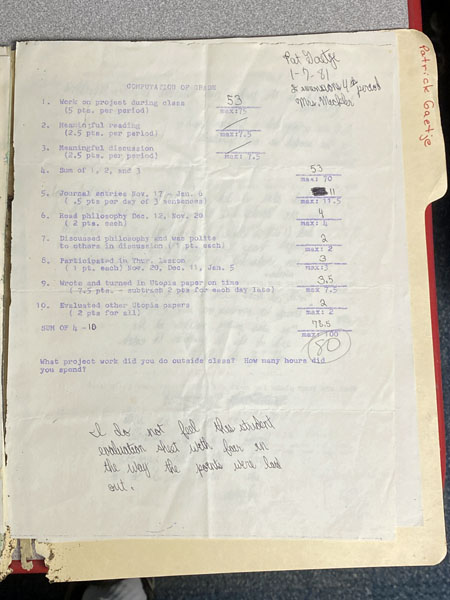 Patrick Gaetje
Pat Gaetje
1-7-81
4th period
COMPUTATION OF GRADE
1. Work on project during class 53
(5 pts. per period) max:75
2. Meaningful reading
(2.5 pts. per period) max:7.5
3. Meaningful discussion
(2.5 pts. per period) max: 7.5
4. Sum of 1, 2, and 3 53
max: 70
5. Journal entries Nov. 17 - Jan. 6 11
( .5 pts per day of 3 sentences) max: 17.5
6. Read philosophy Dec. 12, Nov. 20 4
( 2 pts. each) max: 4
7. Discussed philosophy and was polite 2
to others in discussion ( 1 pt. each) max: 2
8. Participated in Thur. Lesson 3
( 1 pt. each) Nov. 20, Dec. 11, Jan. 5 max:3
9. Wrote and turned in Utopia paper on time 3.5
( 7.5 pts. - subtract 2 pts for each day late) max 7.5
10. Evaluated other Utopia papers 2
( 2 pts for all) max: 2
SUM OF 4 -10 78.5
max: 100
80
What project work did you do outside class? How many hours did
you spend?
I do not feel this student
evaluation sheet with fair in
the way the points were laid
out.